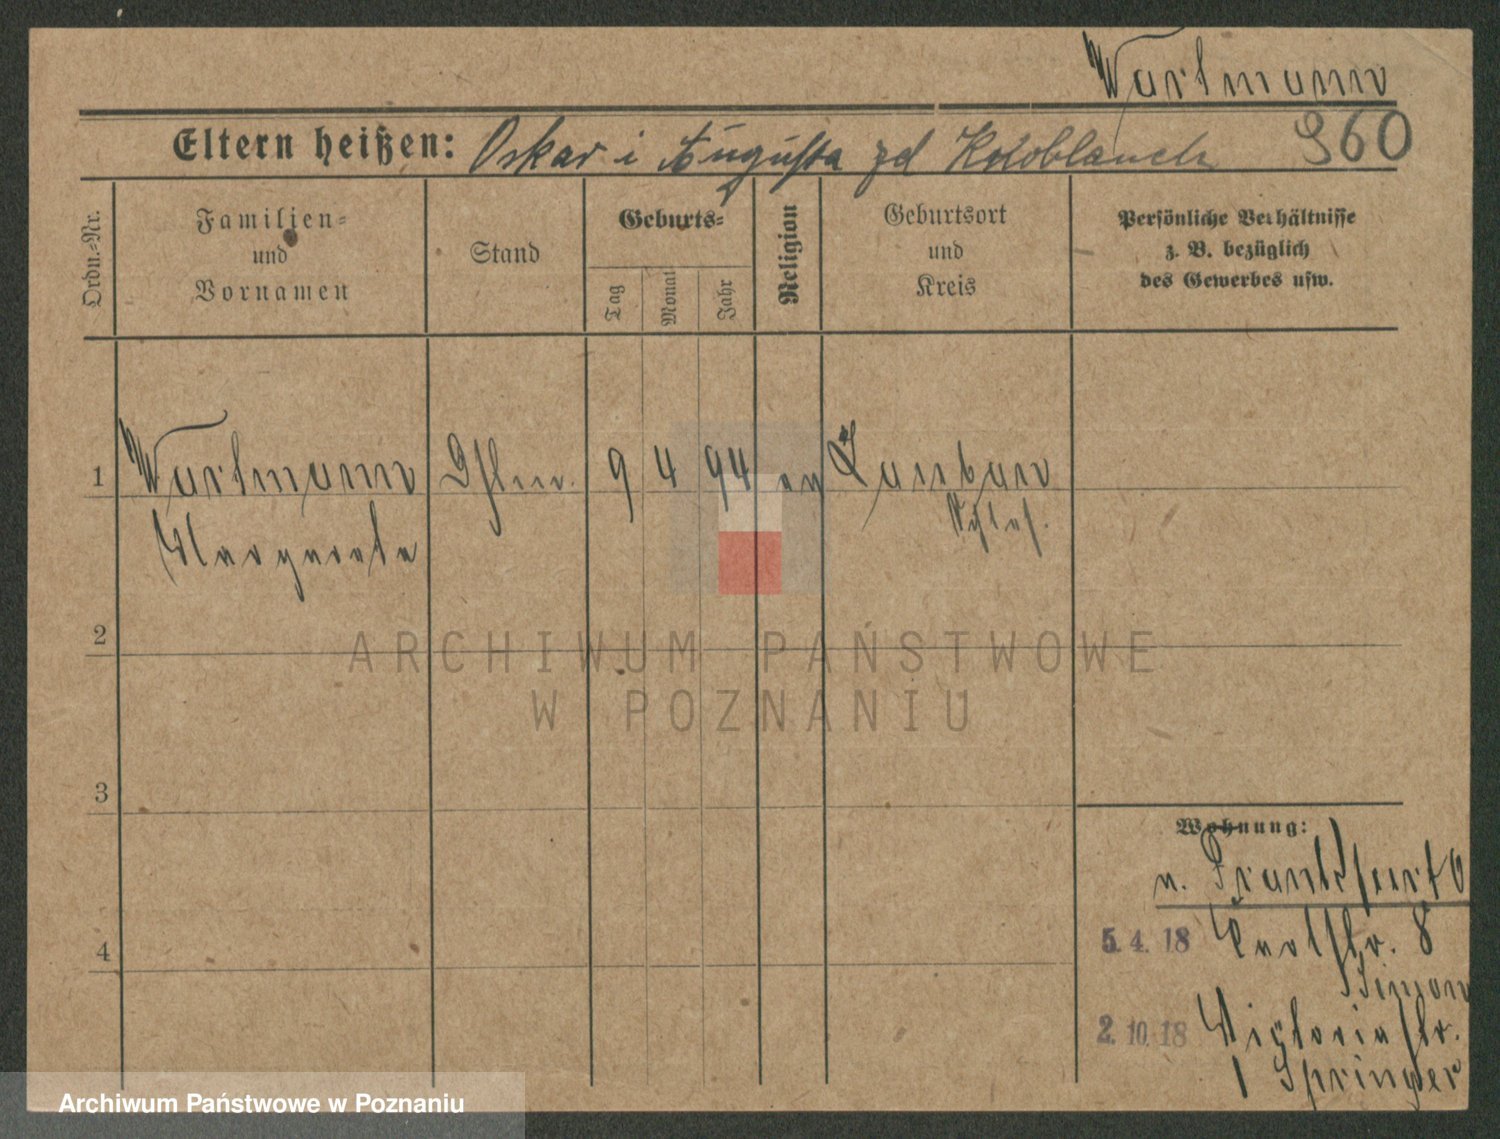 Wartmann
Eltern heißen: Oskar i Augusta zd Knoblauch 960
Ordn.-Nr.
Familien-
und
Vornamen
Stand
Geburts-
Tag
Monat
Jahr
Religion
Geburtsort
und
Kreis
Persönliche Verhältnisse
z. B. bezüglich
des Gewerbes usw.
1 Wartmann 9 4 94 ev Lauban
Margarete Schles.
2
3
4
ARCHIWUM PAŃSTWOWE
W POZNANIU
Wohnung:
n. Frankfurt O
5. 4. 18 8
2. 10. 18 Viktoriastr.
1 Springer
Archiwum Państwowe w Poznaniu